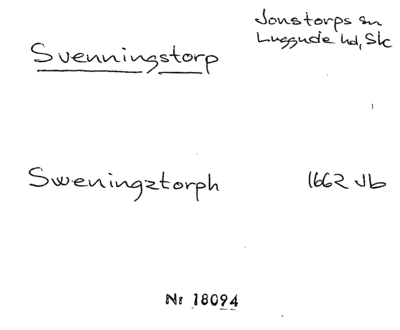 Jonstorps sn
Luggude hd, Sk
Svenningstorp
Sweningztorph 1662 Jb
Nr 18094